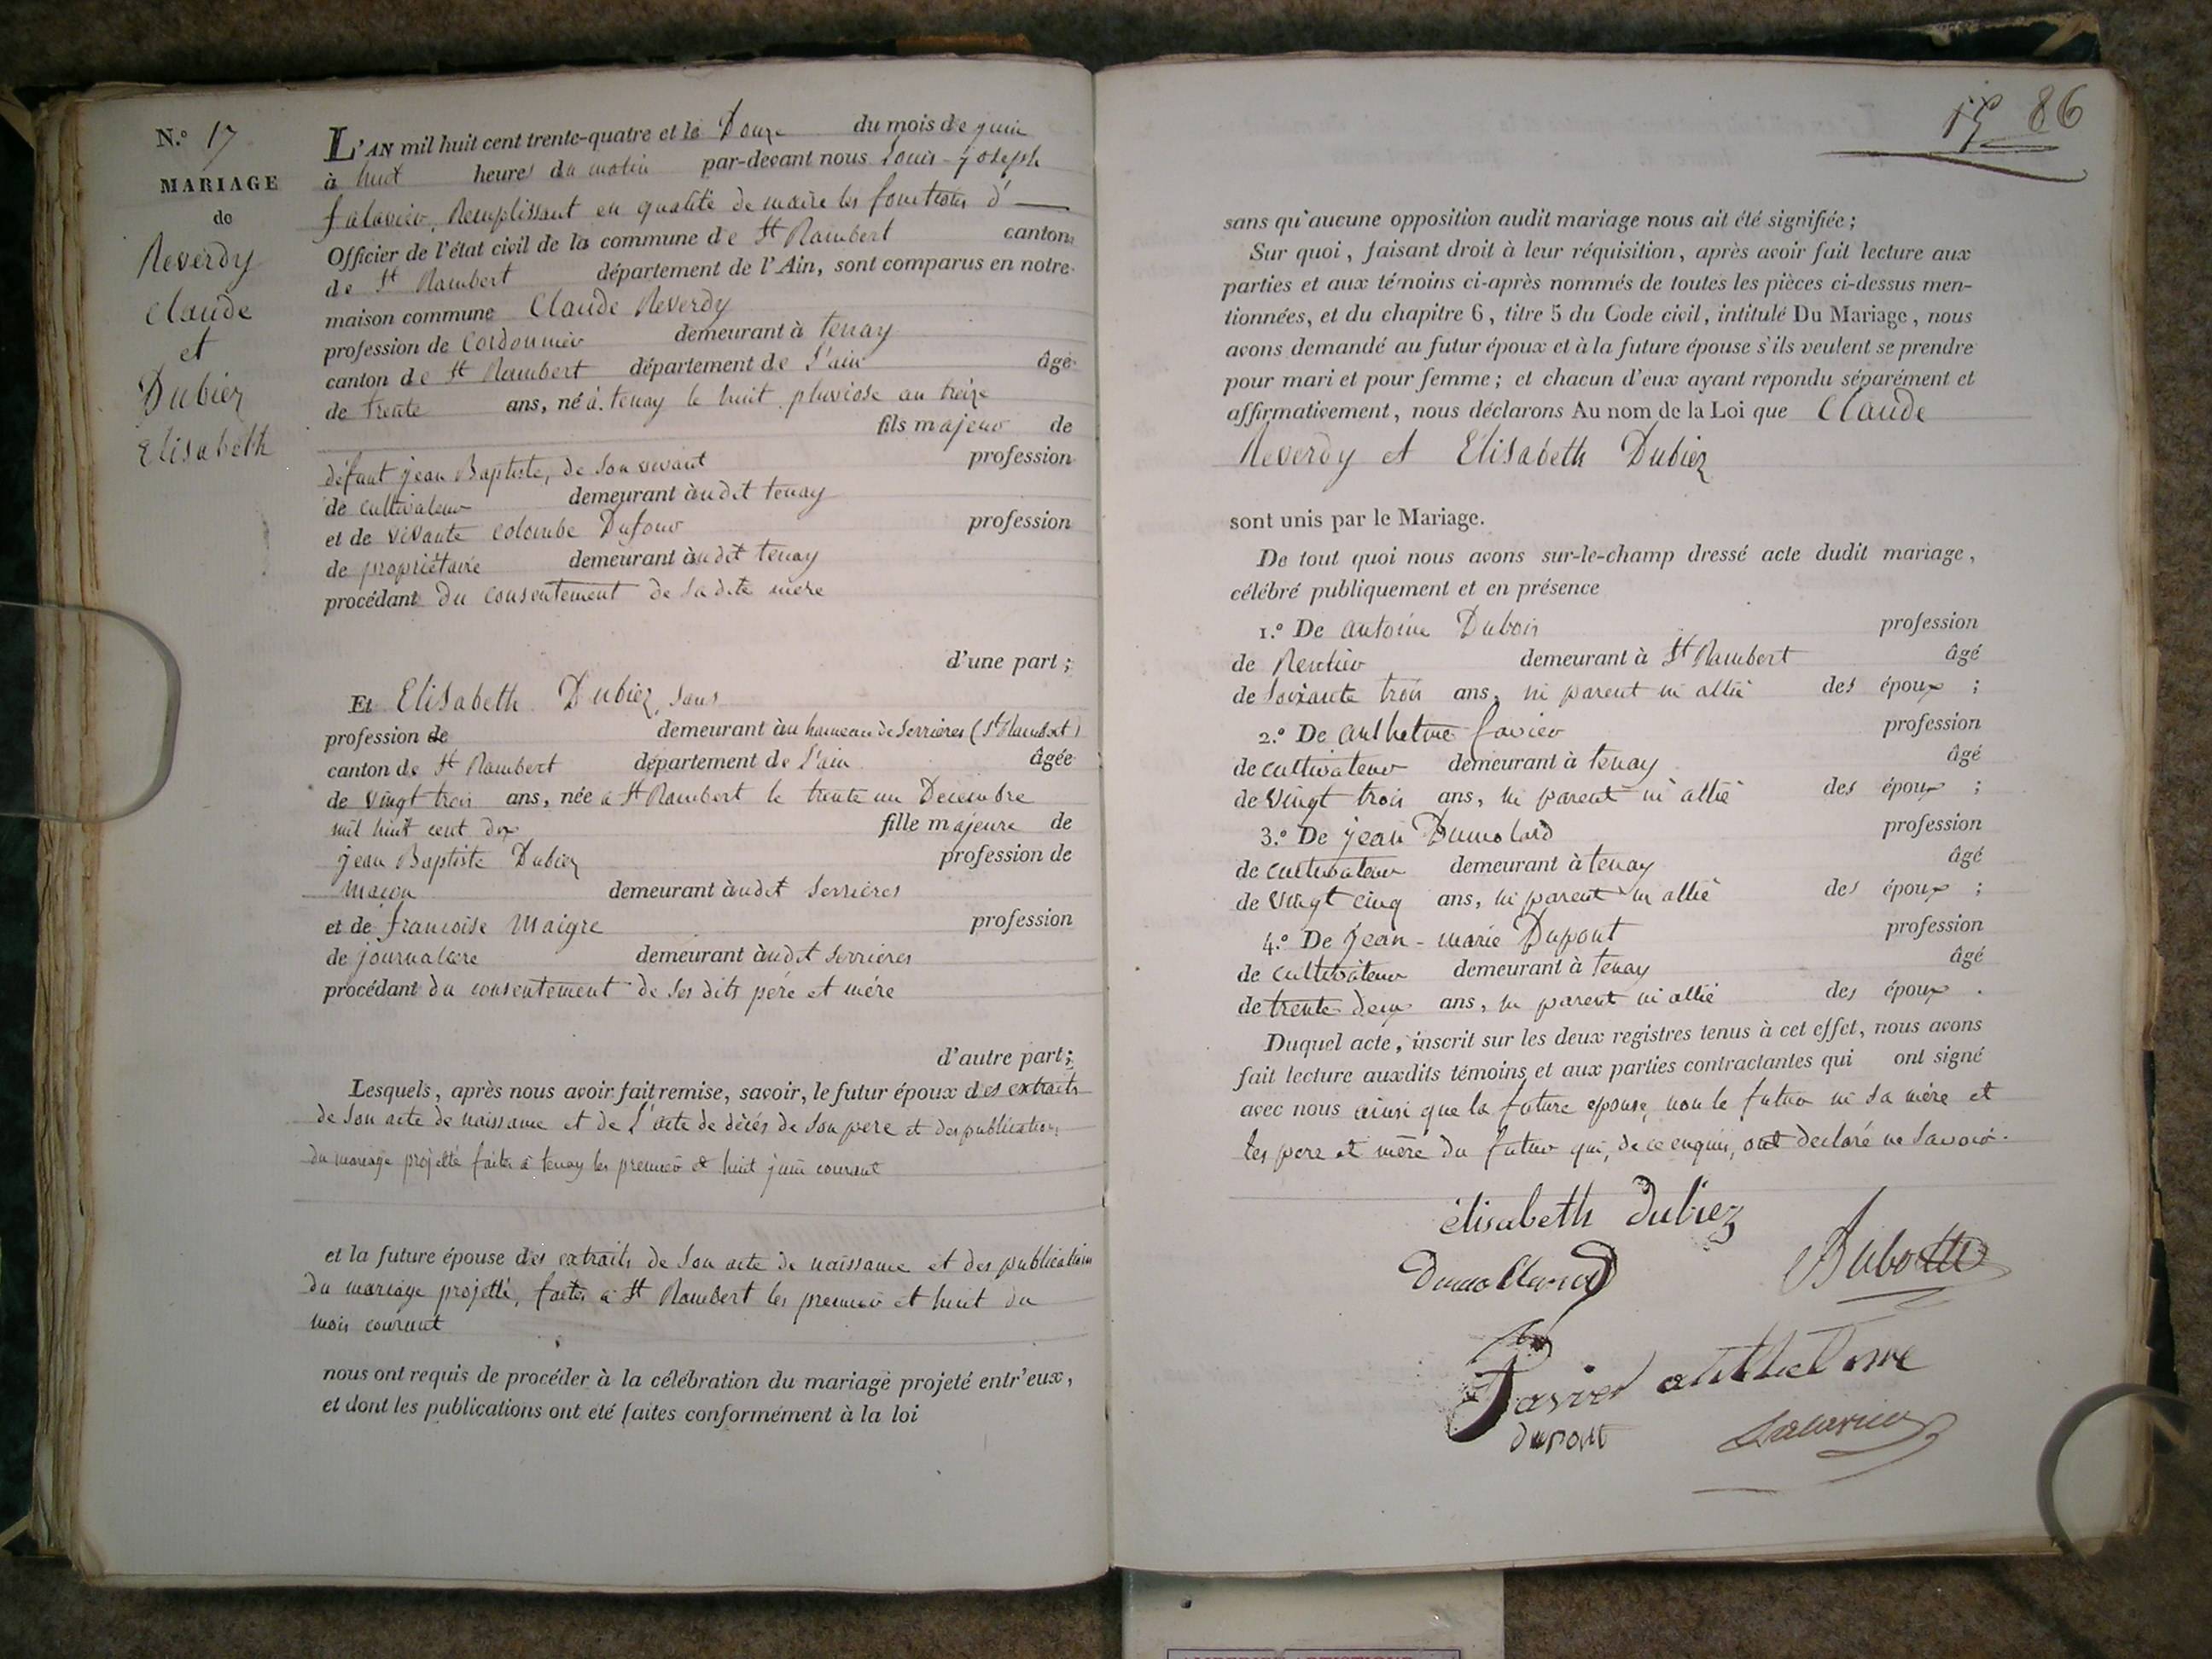 N.º 17
MARIAGE
de
Reverdy
Claude
et
Dubiez
Elisabeth
L'AN mil huit cent trente-quatre et le Douze du mois de juin
à huit heures du matin par-devant nous Louis-Joseph
falavier, Remplissant en qualité de maire les fonctions d'
Officier de l'état civil de la commune de St Rambert canton
de St Rambert département de l'Ain, sont comparus en notre
maison commune Claude Reverdy
profession de Cordonnier demeurant à tenay
canton de St Rambert département de l'ain âgé
de trente ans, né à tenay le huit pluviose an treize
fils majeur de
défunt jean Baptiste, de son vivant profession
de cultivateur demeurant àudit tenay
et de vivante colombe Dufour profession
de propriétaire demeurant àudit tenay
procédant du consentement de sadite mère
d'une part ;
Et Elisabeth Dubiez, sans
profession de demeurant àu hameau de Serrières (St Rambert)
canton de St Rambert département de l'ain âgée
de vingt trois ans, née à St Rambert le trente un Decembre
mil huit cent dix fille majeure de
jean Baptiste Dubiez profession de
maçon demeurant àudit Serrières
et de françoise Maigre profession
de journaliere demeurant àudit Serrières
procédant du consentement de ses dits père et mère
d'autre part ;
Lesquels, après nous avoir fait remise, savoir, le futur époux des extraits
de son acte de naissance et de l'acte de décès de son pere et des publications
du mariage projetté faites à tenay les premier et huit juin courant
et la future épouse des extraits de son acte de naissance et des publications
du mariage projetté, faites à St Rambert les premier et huit du
mois courant
nous ont requis de procéder à la célébration du mariage projeté entr'eux,
et dont les publications ont été faites conformément à la loi
86
sans qu'aucune opposition audit mariage nous ait été signifiée ;
Sur quoi, faisant droit à leur réquisition, après avoir fait lecture aux
parties et aux témoins ci-après nommés de toutes les pièces ci-dessus men-
tionnées, et du chapitre 6, titre 5 du Code civil, intitulé Du Mariage, nous
avons demandé au futur époux et à la future épouse s'ils veulent se prendre
pour mari et pour femme ; et chacun d'eux ayant répondu séparément et
affirmativement, nous déclarons Au nom de la Loi que Claude
Reverdy et Elisabeth Dubiez
sont unis par le Mariage.
De tout quoi nous avons sur-le-champ dressé acte dudit mariage,
célébré publiquement et en présence
1.º De antoine Dubois profession
de Rentier demeurant à St Rambert âgé
de soixante trois ans, ni parent ni allié des époux ;
2.º De anthelme favier profession
de cultivateur demeurant à tenay âgé
de vingt trois ans, ni parent ni allié des époux ;
3.º De jean Dumolard profession
de cultivateur demeurant à tenay âgé
de vingt cinq ans, ni parent ni allié des époux ;
4.º De jean-marie Dupont profession
de cultivateur demeurant à tenay âgé
de trente deux ans, ni parent ni allié des époux .
Duquel acte, inscrit sur les deux registres tenus à cet effet, nous avons
fait lecture auxdits témoins et aux parties contractantes qui ont signé
avec nous ainsi que la future epouse, non le futur ni sa mère et
les pere et mère du futur qui, de ce enquis, ont declaré ne savoir.
élisabeth dubiez
Dumollard
favier anthelme
dupont